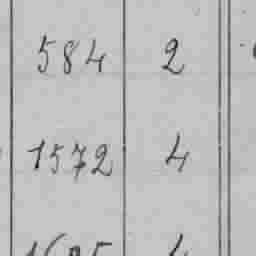 584 2
1572 4